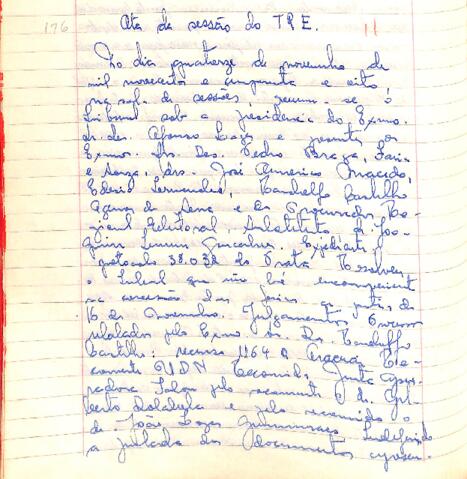 176
Ata da sessão do T.R.E. 11
No dia quatorze de novembro de
mil novecentos e cinquenta e oito,
na sala de sessões, reuniu-se o
Tribunal sob a presidencia do Exmo.
Sr. des. Afonso Lages e presentes os
Exmos. Srs. Des. Pedro Braga, Faria
e Souza, drs. José Americo Macedo,
Edesio Fernandes, Bandulfo Castilho
de Sena e Dr. Procurador Re-
gional Eleitoral, Substituto, dr. Joa-
quim Gonçalves. Expediente:
protocolo 38.032 do Prata: Resolveu
o Tribunal que não há inconveniente
na concessão das ferias a partir de
16 de novembro. Julgamentos: Processos
relatados pelo Exmo. Sr. Dr. Bandulfo
Castilho: recurso 1164 Re-
corrente UDN Recorrida, Junta Apu-
radora. Falou pelo recorrente o dr. Gil-
berto Dolabela e pelo recorrido o
dr. João Lages Indeferida
a juntada dos documentos apresen-